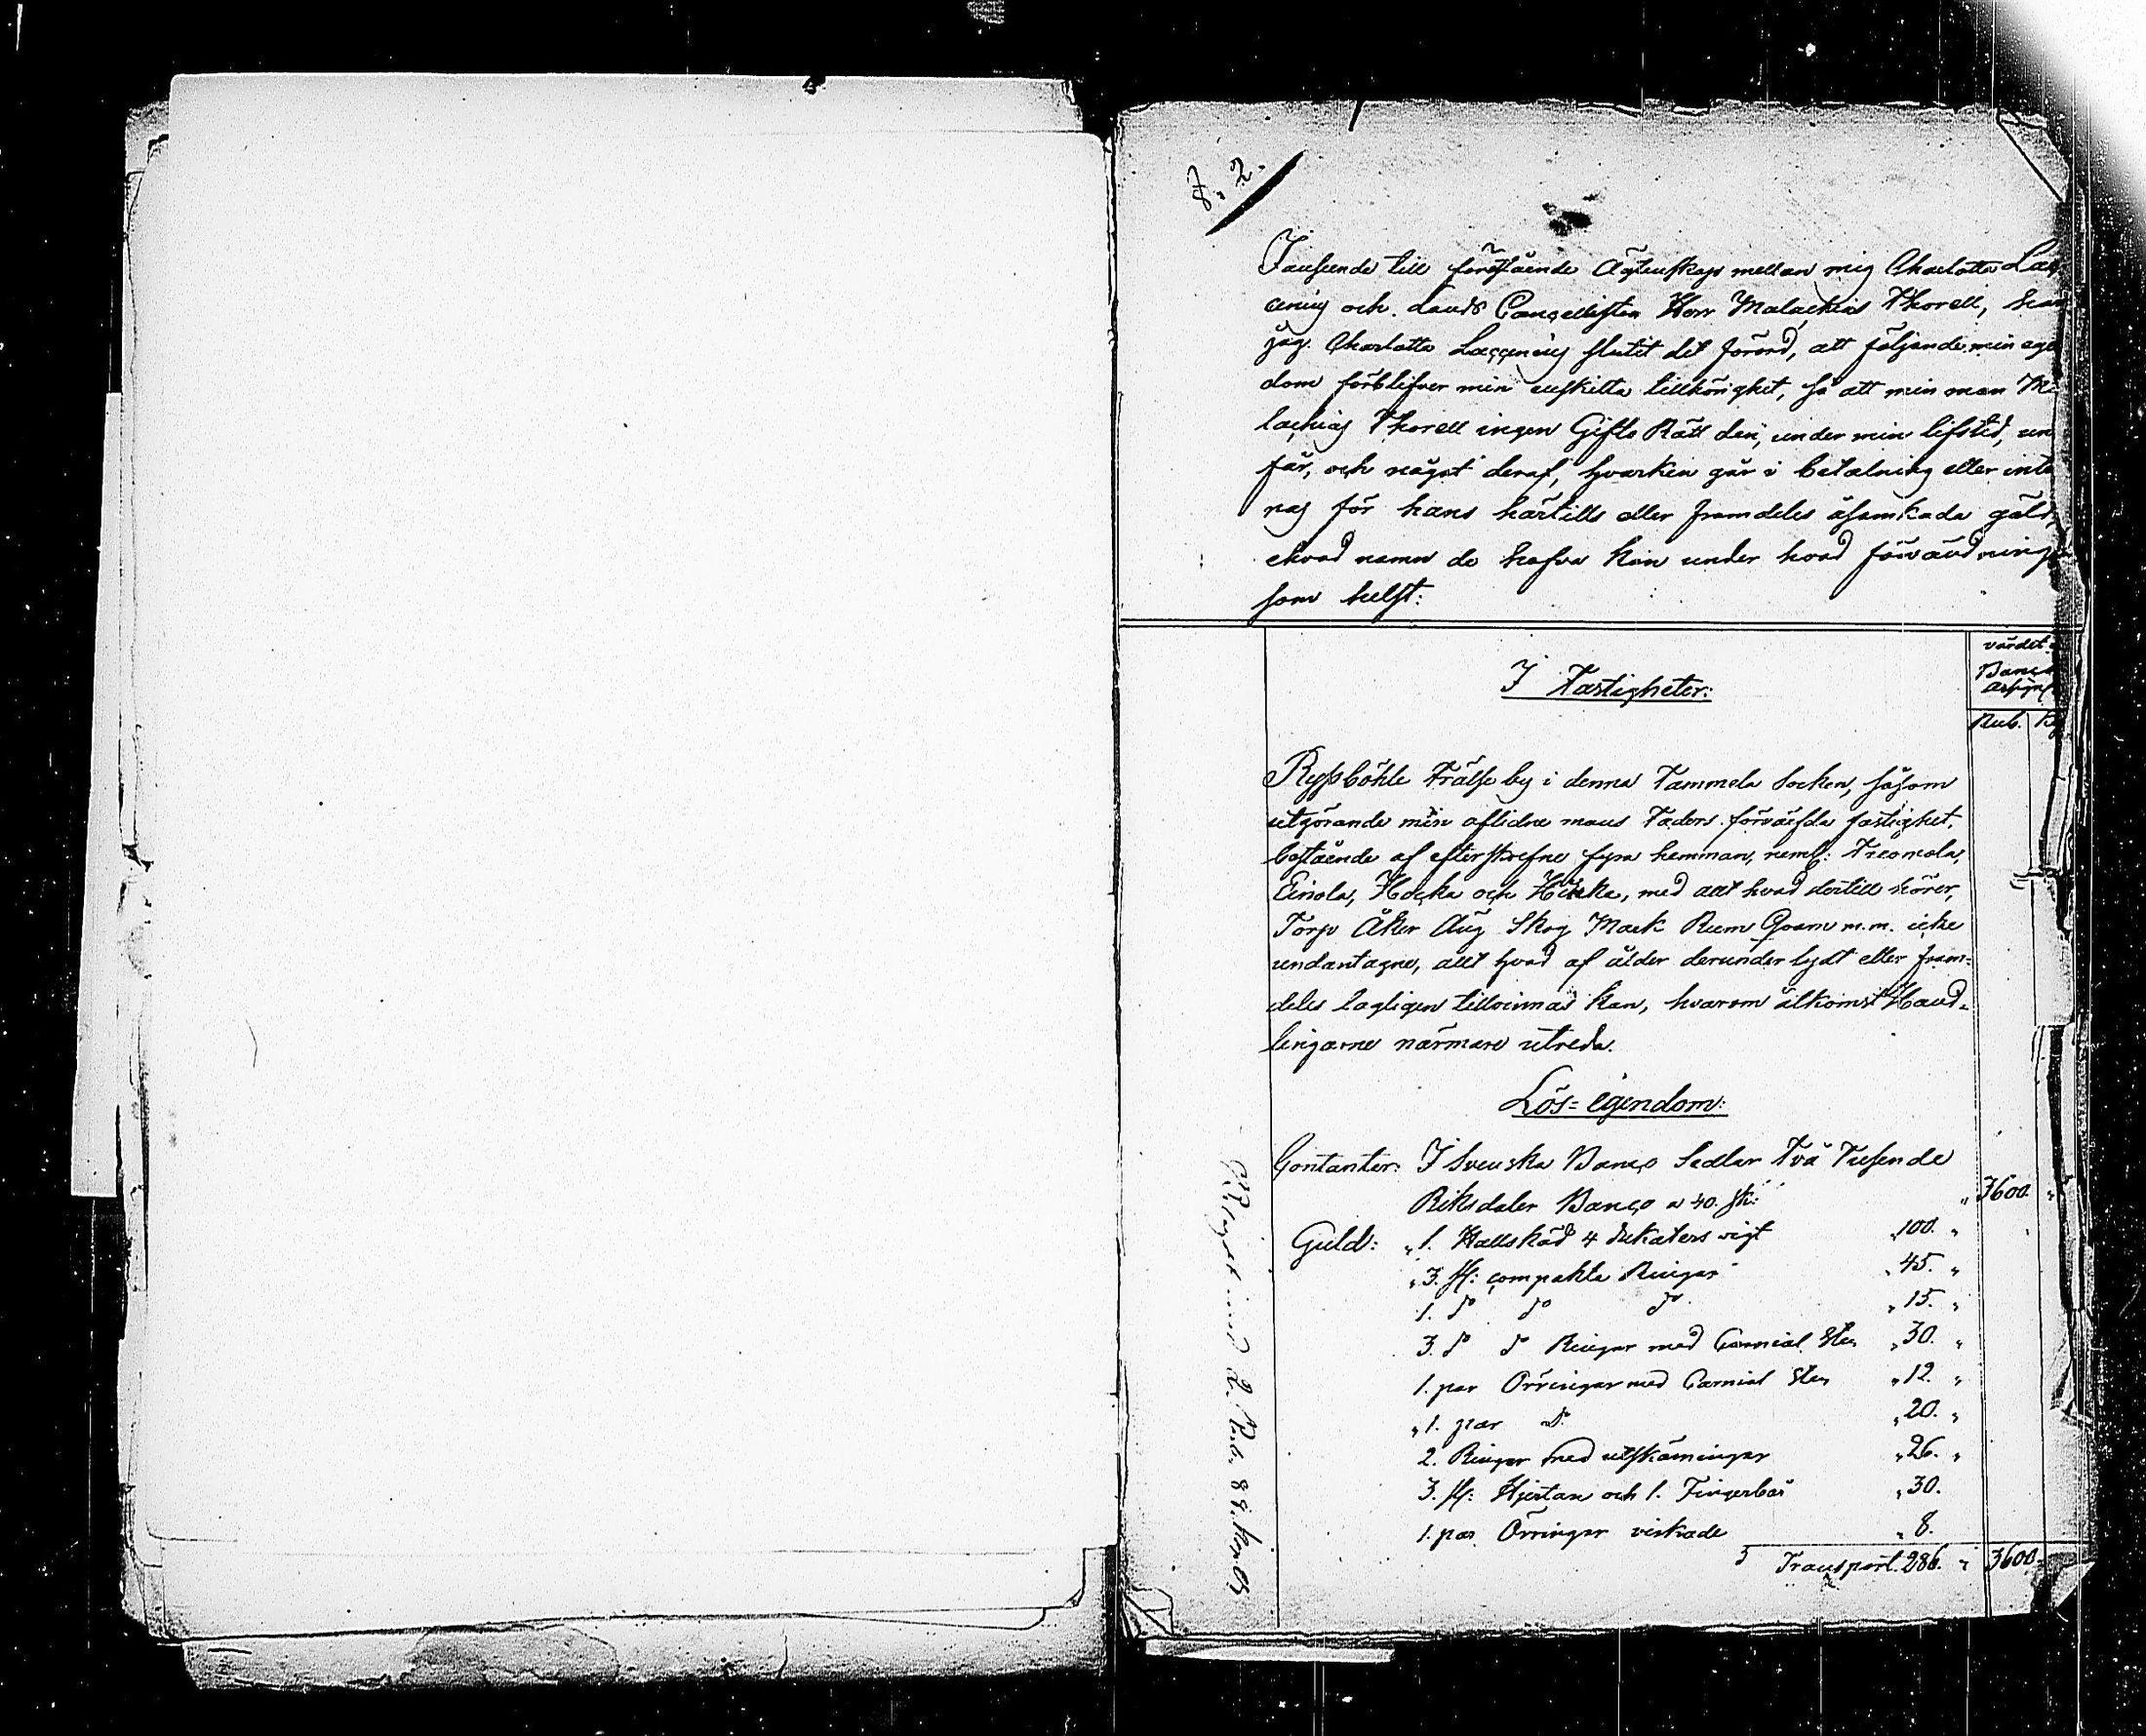 F. 2.
Tauseende till förestående Ägtenskap mellan mig Charlotta Læg
cning och Lands Cancellisten Herr Malachias Thorell, har
jag Charlotta Læccening slutit det förord, att följande min egen
dom förblifver min enskilta tillhörighet, så att min man Ma
lachias Thorell ingen Gifto Rätt den, under min lifstid, un
får, och något deraf, hvarken går i betalning eller inte
nas för hans härtills eller framdeles åsamkada gäld,
ehvad namn de hafva kan under hvad förevändning
som helst:
värdet i
Banco
assign
Rub. K
I Fastigheter:
Ryssböhle Frälse by i denna Tammela Socken, såsom
utgörande min aflidne mans Faders förvärfda fastighet,
bestående af efterskrefne fyra hemman, neml:
Einola, Hocka och Hirka, med allt hvad dertill hörer,
Torp Åker Äng Skog Mark Rum Qvarn m.m. icke
undantagne, allt hvad af ålder derunder lydt eller fram=
deles lagligen tillvinnas kan, hvarom åtkomst Hand=
lingarne närmare utreda.
Lös=egendom:
Contanter: I Svenska Banco Sedlar Två Tusende
Riksdaler Banco a 40. sk: " 3600. "
Guld: " 1. Hallskäd 4 dukaters vigt " 100. "
" 3. st: compakta Ringar " 45. "
1. do do do " 15. "
3. do do Ringar med Carniol Sten " 30. "
1. par Örringar med Carniol Sten " 12. "
" 1. par do " 20. "
2. Ringar med utskärningar " 26. "
3. st: Hjertan och 1. Fingerbår " 30.
1. par Örringar virkade " 8.
Transport. 286. " 3600.
Belagt med 2. Rub. 89. kop.